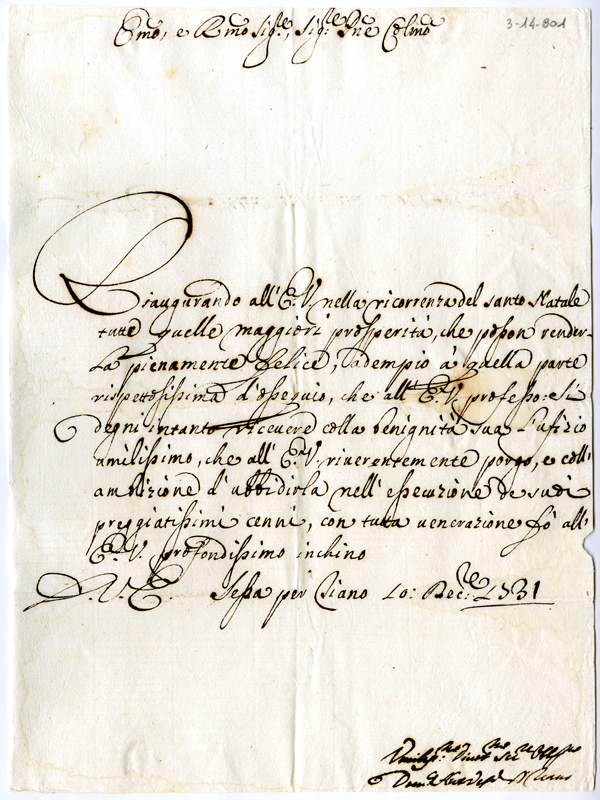 3-14-801
Emo, e Rmo Sigre, Sigr Pne Colmo
Riaugurando all' E. V. nella ricorrenza del santo Natale
tutte quelle maggiori prosperità, che posson render-
La pienamente felice, adempio à quella parte
rispettosissima d'ossequio, che all' E. V. professo: Si
degni intanto ricevere colla benignità sua l'ufizio
umilissimo, che all' E. V. riverentemente porgo, e coll'
ambizione d'ubbidirla nell' essecuzione de suoi
preggiatissimi cenni, con tutta venerazione fò all'
E. V. profondissimo inchino
D. V. E. Sessa per Ciano 10: Decre: 1731
Umiliss:mo Divot:mo Ser:re Obbl:mo